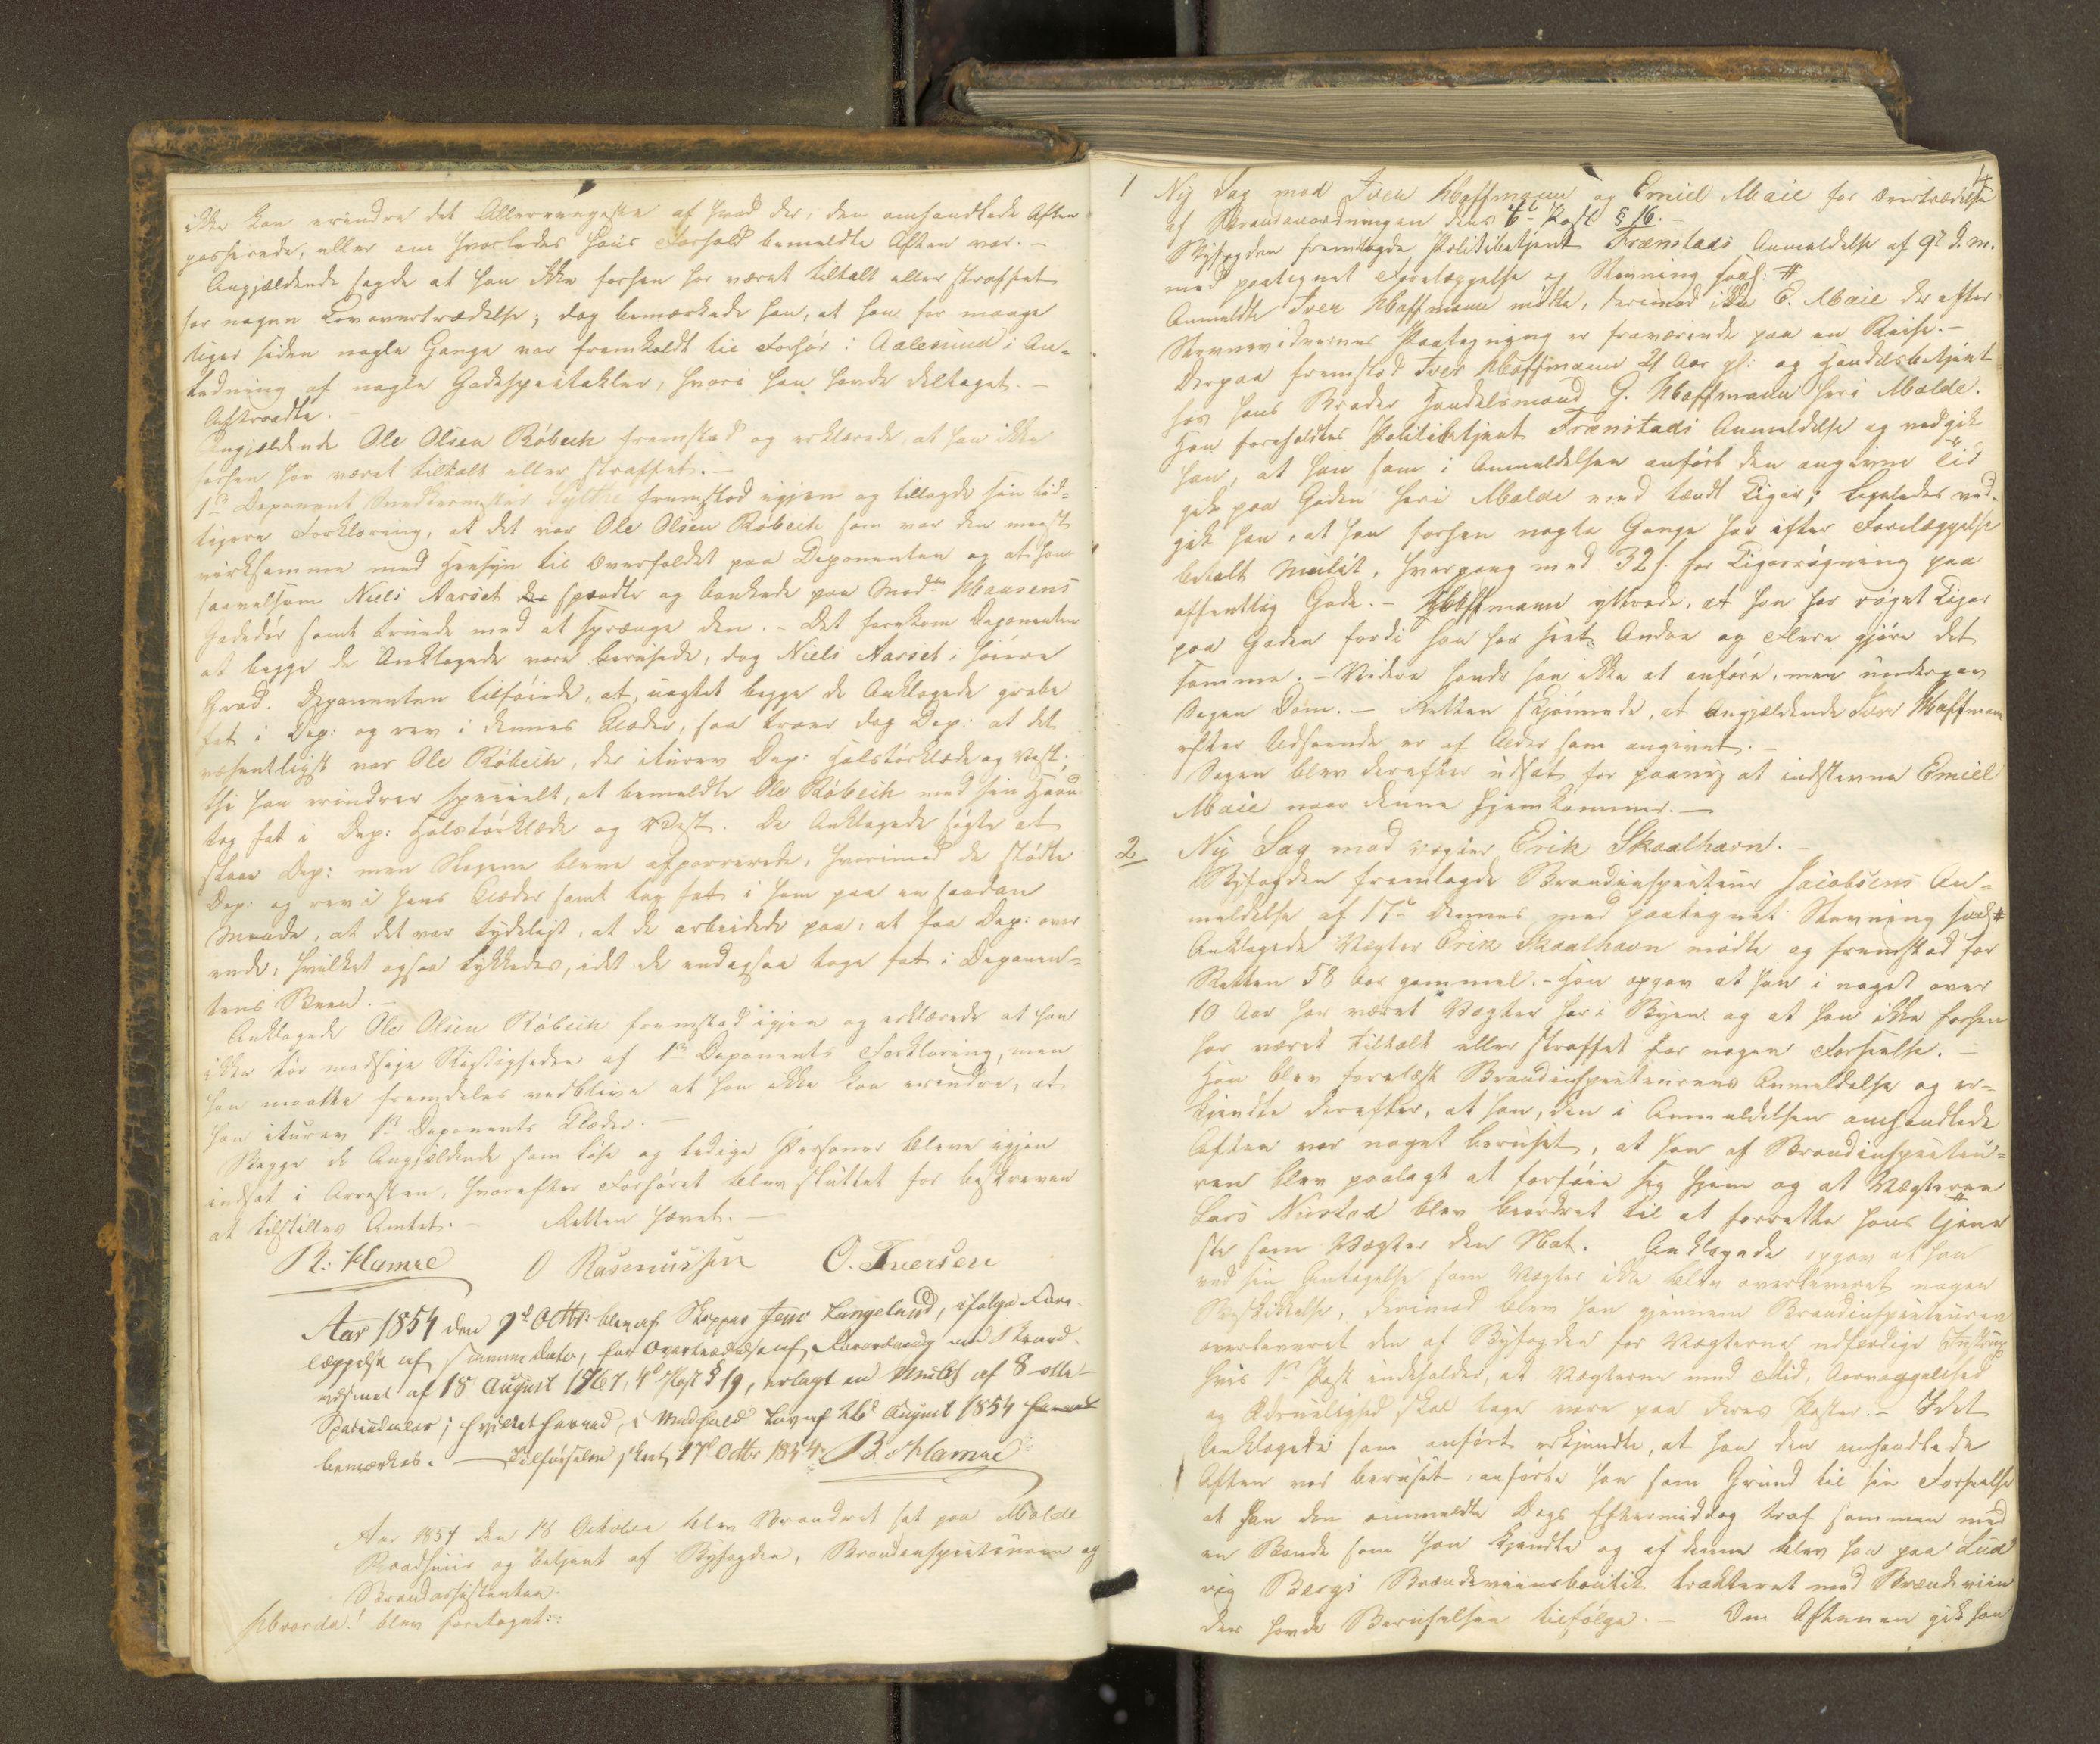 ikke kan erindre det Allerringeste af hvad der, den omhandlede Aften
passerede, eller om hvorledes hans Forhold bemeldte Aften var. –
Angjældende sagde at han ikke forhen har været tiltalt eller straffet
for nogen Lovovertrædelse; dog bemærkede han, at han for mange
siden nogle Gange var fremkaldt til Forhør i Aalesund i An-
ledning af nogle Gadespectakler, hvori han havde deltaget. –
Aftraadte. –
Angjældende Ole Olsen Röbeck fremstod og erklærede, at han ikke
forhen har været tiltalt eller straffet. –
1ste Deponent Sylthe fremstod igjen og tillagde sin tid-
ligere Forklaring, at det var Ole Olsen Röbeck som var den meest
virksomme med Hensyn til Overfaldet paa Deponenten og at han
saavelsom Niels Aarset spændte og bankede paa Mad. Hansens
Gadedör samt truede med at sprænge den. – Det forekom Deponenten
at begge de Anklagede vare berusede, dog Niels Aarset i höiere
Grad. Deponenten tilföiede, at, uagtet begge de Anklagede grebe
fat i Dep: og rev i dennes Klæder, saa troer dog Dep: at det
væsentligst var Ole Röbeck, der iturev Dep: Halstörklæde og Vest;
thi han erindrer specielt, at bemeldte Ole Röbeck med sin Haand
tog fat i Dep: Halstörklæde og Vest. De Anklagede sögte at
slaae Dep: men Slagene bleve afparerede, hvorimod de stödte
Dep: og rev i hans Klæder samt tog fat i ham paa en saadan
Maade, at det var tydeligt, at de arbeidede paa, at faa Dep: over
ende, hvilket ogsaa lykkedes, idet de endogsaa toge fat i Deponen-
tens Been. –
Anklagede Ole Olsen Röbeck fremstod igjen og erklærede at han
ikke tör modsige Rigtigheden af 1ste Deponents Forklaring, men
han maatte fremdeles vedblive at han ikke kan erindre, at
han iturev 1ste Deponents Klæder. –
Begge de Angjældende som löse og ledige Personer bleve igjen
indsat i Arresten, hvorefter Forhöret blev sluttet for beskreven
at tilstilles Amtet. – Retten hævet. –
R. Hamre O Rasmussen O. Iversen
Aar 1854 den 9d Octbr: blev af Skipper Jens Langeland, ifölge Fore-
læggelse af samme Dato, for Overtrædelse af Forordning om Brand-
væsenet af 18 August 1767, 4d Post § 19, erlagt en Mulct af 8 otte
Speciedaler; hvilket herved, i Medhold Lov af 26d August 1854
bemærkes. – Tilförselen skeet 17d Octbr 1854. R. Hamre
Aar 1854 den 18 October blev Brandret sat paa Molde
Raadhuus og betjent af Byfogden, Brandinspecteuren og
Brandassistenten.
Hvorda! blev foretaget:
4
1 Ny Sag mod Iver Hoffmann og Emiel Maie for Overtrædelse
af Brandanordningen dens 6te Post § 16. –
Byfogden fremlagde Politibetjent Frænstads Anmeldelse af 9de d. M.
med paategnet Forelæggelse og Stevning saal: #
Anmeldte Iver Hoffmann mödte, derimod ikke E. Maie der efter
Stevnevidnernes Paategning er fraværende paa en Reise. –
Derpaa fremstod Iver Hoffmann 21 Aar gl: og Handelsbetjent
hos hans Broder Handelsmand G. Hoffmann heri Molde.
Han foreholdtes Politibetjent Frænstads Anmeldelse og vedgik
han, at han som i Anmeldelsen anfört den angivne Tid
gik paa Gaden heri Molde med tændt Cigar; ligeledes ved-
gik han, at han forhen nogle Gange har efter Forelæggelse
betalt Mulct, hvergang med 32 s. for Cigarrögning paa
offentlig Gade. – Hoffmann yttrede, at han har röget Cigar
paa Gaden fordi han har seet Andre og Flere gjöre det
samme. – Videre havde han ikke at anföre, men undergav
Sagen Dom. – Retten skjönnede, at Angjældende Iver Hoffmann
efter Udseende er af Alder som angivet. –
Sagen blev derefter udsat for paany at indstevne Emiel
Maie naar denne hjemkommer. –
2 Ny Sag mod Vægter Erik Skaalhavn. –
Byfogden fremlagde Brandinspecteur Jacobsens An-
meldelse af 17de dennes med paategnet Stevning saal #
Anklagede Vægter Erik Skaalhavn mödte og fremstod for
Retten 58 Aar gammel. – Han opgav at han i noget over
10 Aar har været Vægter her i Byen og at han ikke forhen
har været tiltalt eller straffet for nogen Forseelse. –
Han blev forelæst Brandinspecteurens Anmeldelse og er-
kjendte derefter, at han, den i Anmeldelsen omhandlede
Aften var noget beruset, at han af Brandinspecteu-
ren blev paalagt at forföie sig hjem og at Vægteren
Lars Nustad blev beordret til at forrette hans Tjene
ste som Vægter den Nat. Anklagede opgav at han
ved sin Antagelse som Vægter ikke blev overleveret nogen
Beskikkelse, derimod blev han gjennem Brandinspecteuren
overleveret den af Byfogden for Vægterne udfærdige Instrux
hvis 1ste Post indeholder, at Vægterne med Flid, Aarvaagenhed
og Ædruelighed skal tage vare paa deres Poster. – Idet
Anklagede som anfört erkjendte, at han den omhandlede
Aften var beruset anförte han som Grund til sin Forseelse
at han den anmeldte Dags Eftermiddag traf sammen med
en Bonde som han kjendte og af denne blev han paa Lud
vig Bergs Brændeviinsboutik tracteret med Brændeviin
der havde Beruselsen tilfölge. – Om Aftenen gik han